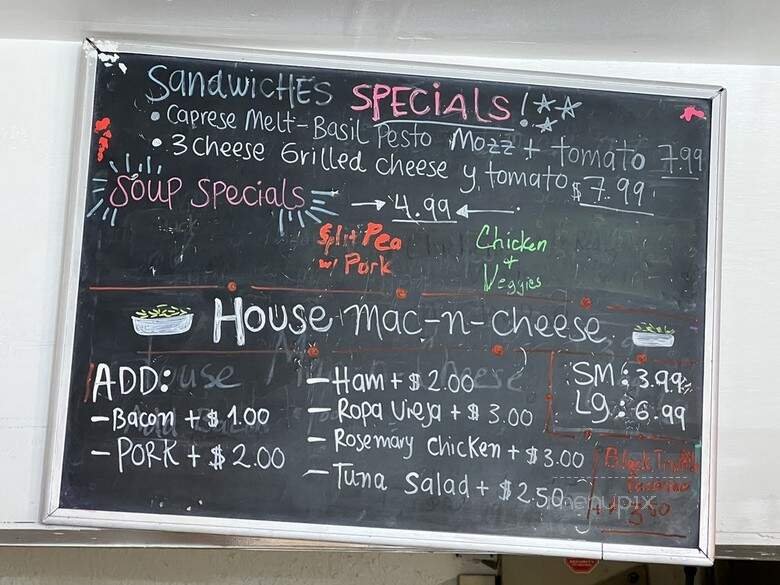 SANDWICHES SPECIALS!
• Caprese Melt-Basil Pesto Mozz + tomato 7.99
• 3 cheese Grilled cheese y tomato $7.99
SOUP SPECIALS
→ 4.99 ←
Split Pea
w/ Pork
Chicken
+
Veggies
House mac-n-cheese
ADD:
- Bacon + $1.00
- PORK + $2.00
- Ham + $2.00
- Ropa Vieja + $3.00
- Rosemary Chicken + $3.00
- Tuna Salad + $2.50
SM: 3.99
Lg: 6.99
Black
menupix